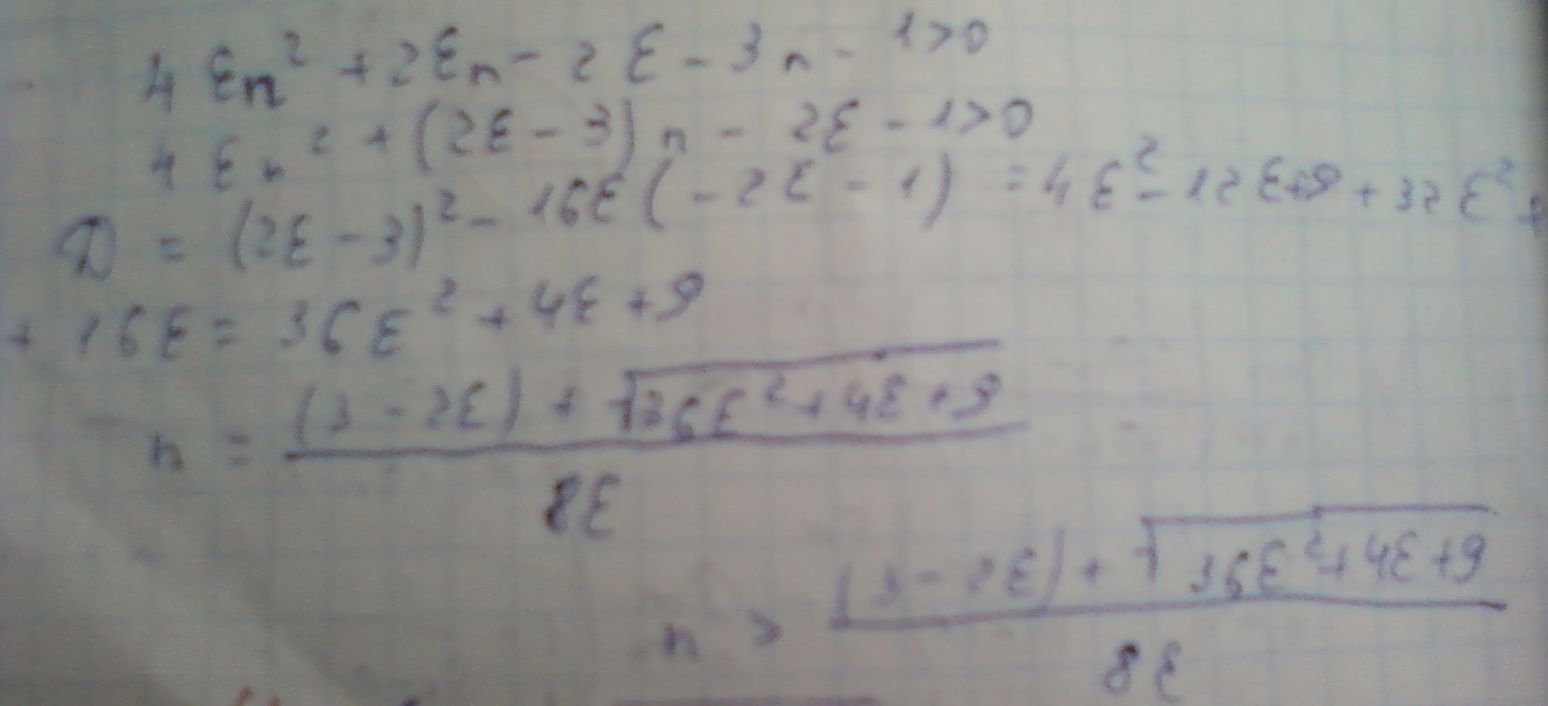 4 εn² + 2εn - 2ε - 3n - 1 > 0
4εn² + (2ε - 3)n - 2ε - 1 > 0
D = (2ε - 3)² - 16ε(-2ε - 1) = 4ε² - 12ε + 9 + 32ε² +
+ 16ε = 36ε² + 4ε + 9
n = ((3 - 2ε) + √(36ε² + 4ε + 9)) / 8ε
n > ((3 - 2ε) + √(36ε² + 4ε + 9)) / 8ε